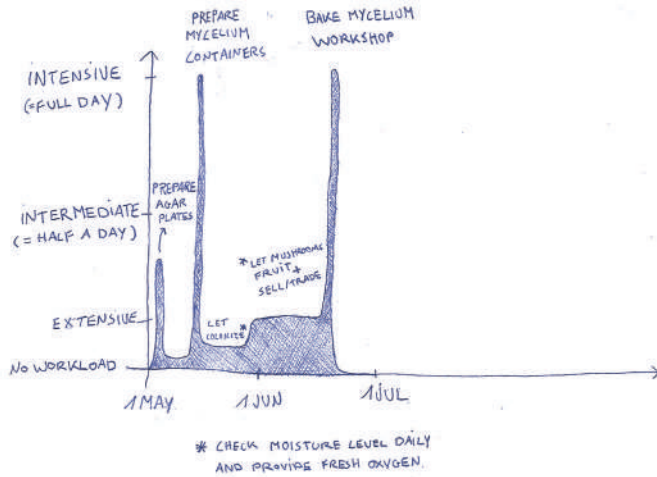 PREPARE
MYCELIUM
CONTAINERS
BAKE MYCELIUM
WORKSHOP
INTENSIVE
(=FULL DAY)
PREPARE
AGAR
PLATES
INTERMEDIATE
(= HALF A DAY)
* LET MUSHROOMS
FRUIT +
SELL/TRADE
EXTENSIVE
LET
COLONIZE *
NO WORKLOAD
1 MAY
1 JUN
1 JUL
* CHECK MOISTURE LEVEL DAILY
AND PROVIDE FRESH OXYGEN.